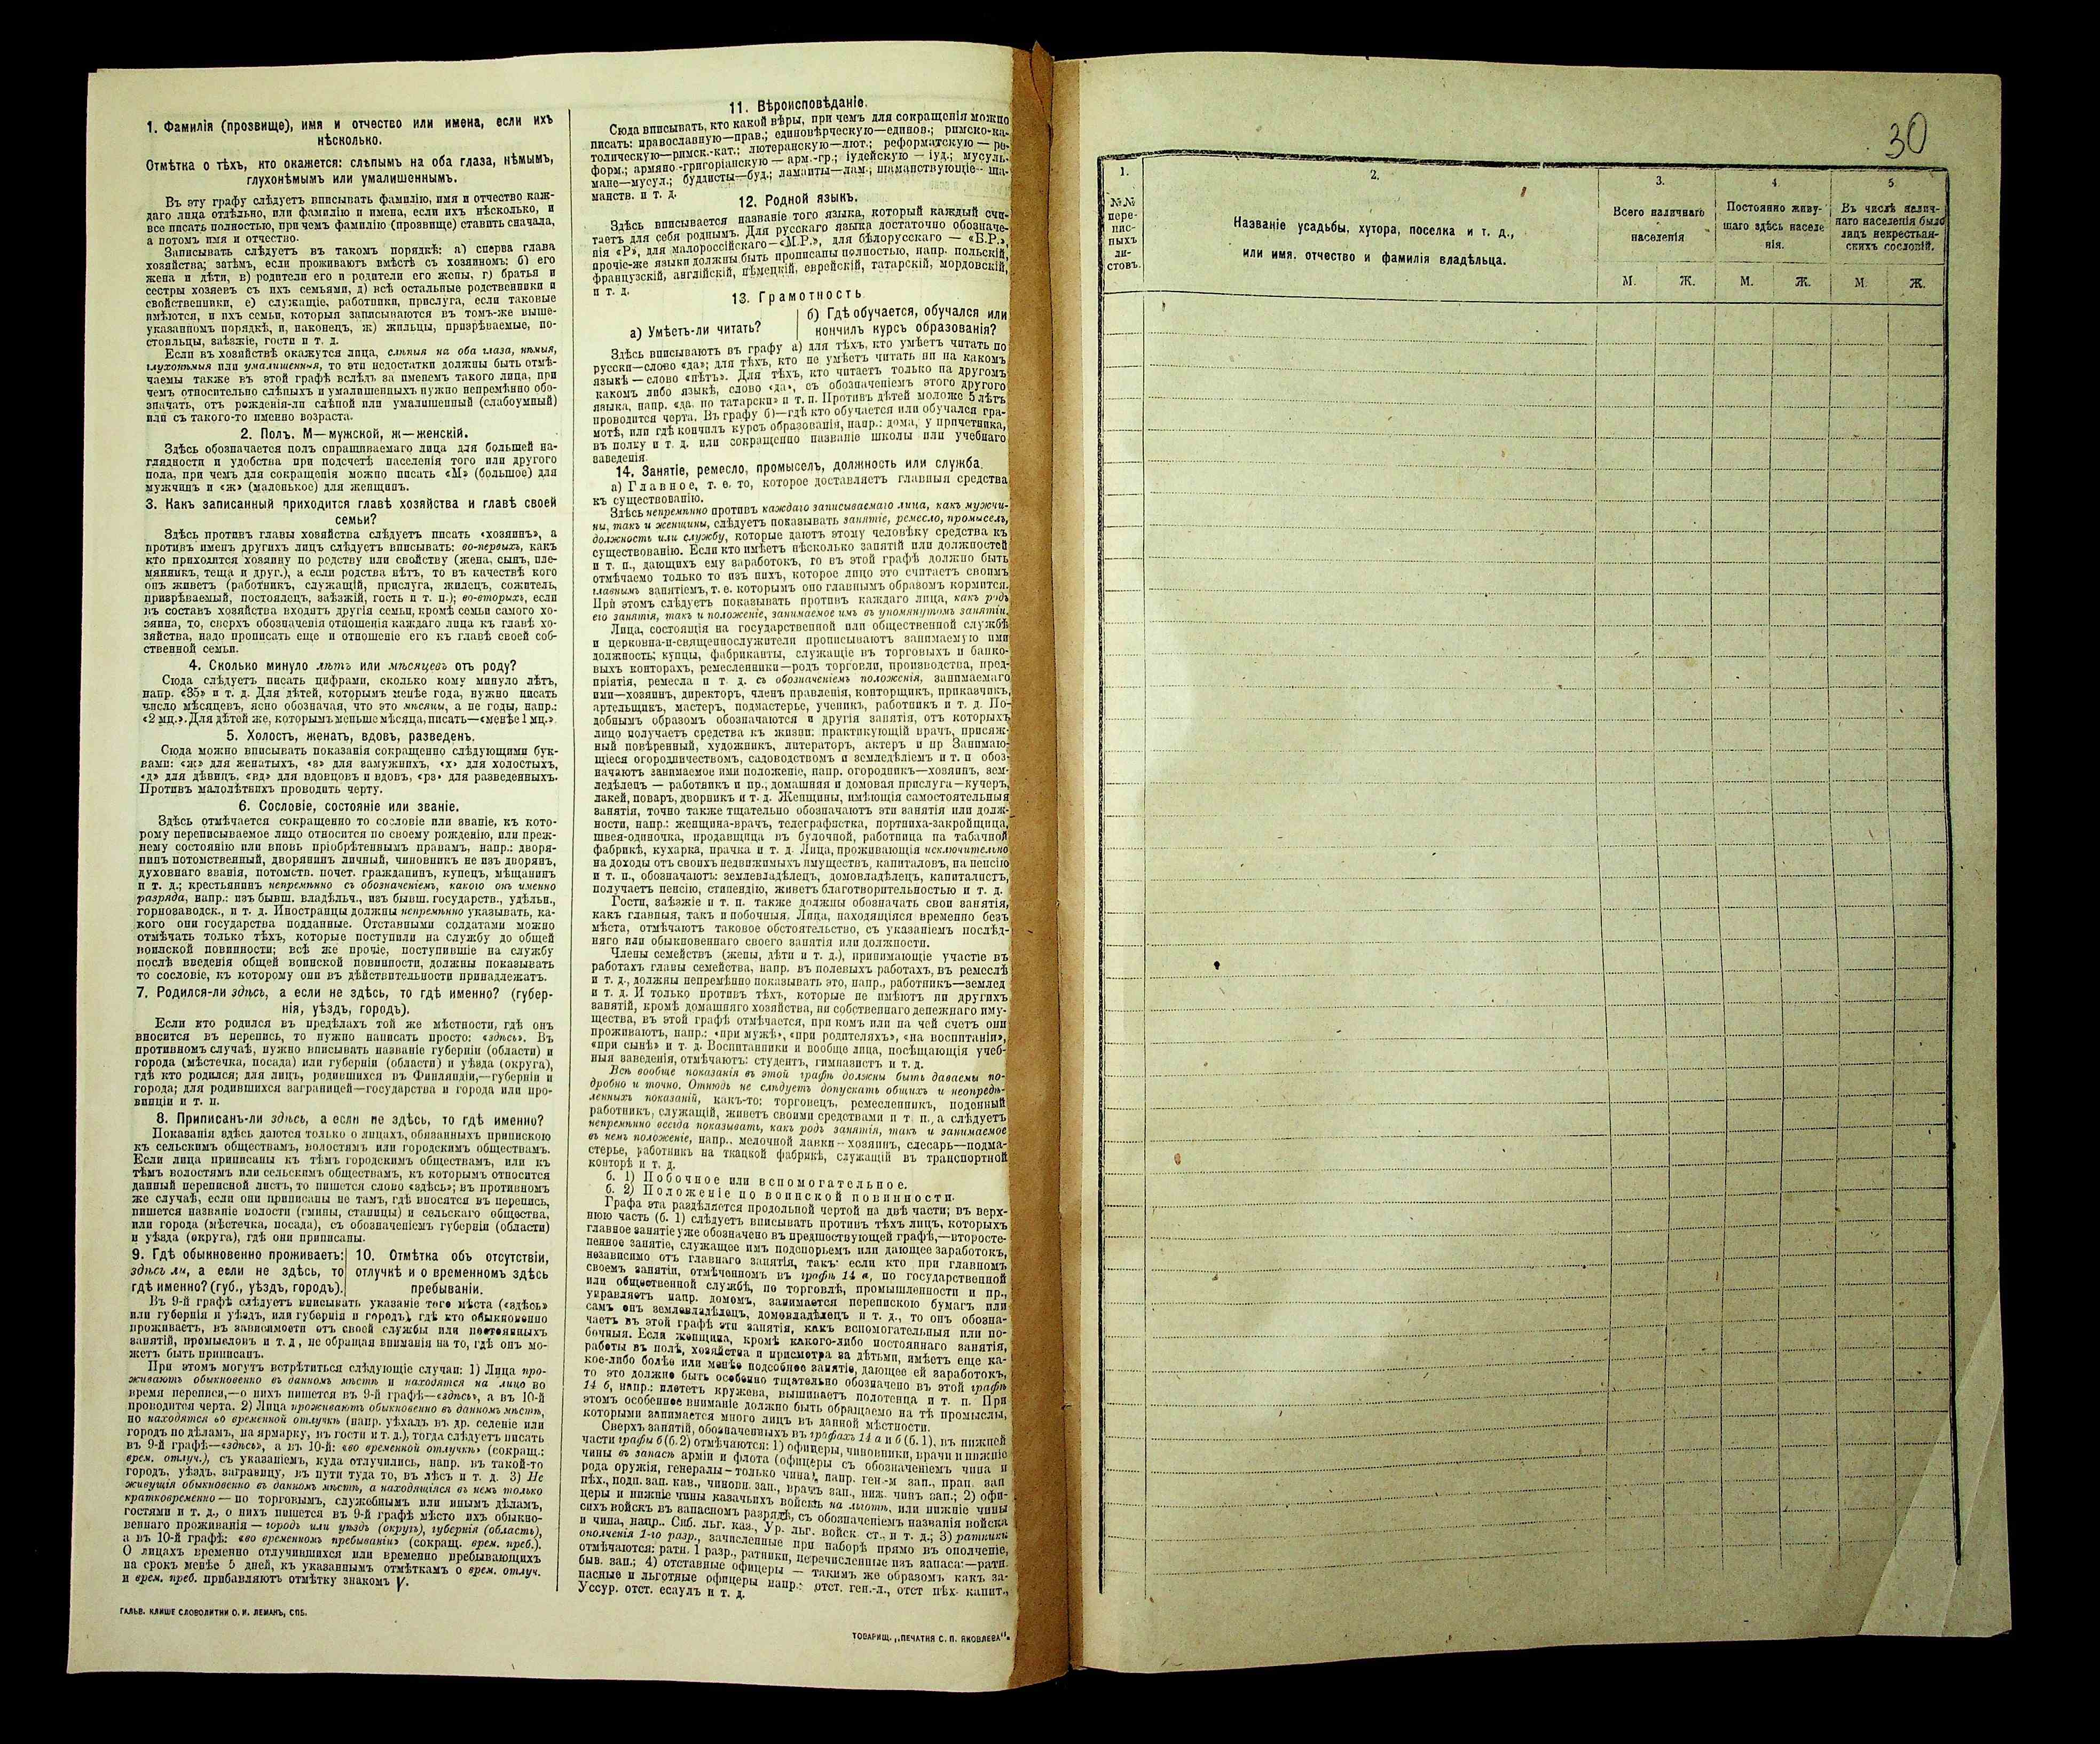 1. Фамилія (прозвище), имя и отчество или имена, если ихъ
нѣсколько.
Отмѣтка о тѣхъ, кто окажется: слѣпымъ на оба глаза, нѣмымъ,
глухонѣмымъ или умалишеннымъ.
Въ эту графу слѣдуетъ вписывать фамилію, имя и отчество каж-
даго лица отдѣльно, или фамилію и имена, если ихъ нѣсколько, и
все писать полностью, при чемъ фамилію (прозвище) ставить сначала,
а потомъ имя и отчество.
Записывать слѣдуетъ въ такомъ порядкѣ: а) сперва глава
хозяйства; затѣмъ, если проживаютъ вмѣстѣ съ хозяиномъ: б) его
жена и дѣти, в) родители его и родители его жены, г) братья и
сестры хозяевъ съ ихъ семьями, д) всѣ остальные родственники и
свойственники, е) служащіе, работники, прислуга, если таковые
имѣются, и ихъ семьи, которыя записываются въ томъ-же выше-
указанномъ порядкѣ, и, наконецъ, ж) жильцы, призрѣваемые, по-
стояльцы, заѣзжіе, гости и т. д.
Если въ хозяйствѣ окажутся лица, слѣпыя на оба глаза, нѣмыя,
глухонѣмыя или умалишенныя, то эти недостатки должны быть отмѣ-
чаемы также въ этой графѣ вслѣдъ за именемъ такого лица, при
чемъ относительно слѣпыхъ и умалишенныхъ нужно непремѣнно обо-
значать, отъ рожденія-ли слѣпой или умалишенный (слабоумный)
или съ такого-то именно возраста.
2. Полъ. М—мужской, ж—женскій.
Здѣсь обозначается полъ спрашиваемаго лица для большей на-
глядности и удобства при подсчетѣ населенія того или другого
пола, при чемъ для сокращенія можно писать «М» (большое) для
мужчинъ и «ж» (маленькое) для женщинъ.
3. Какъ записанный приходится главѣ хозяйства и главѣ своей
семьи?
Здѣсь противъ главы хозяйства слѣдуетъ писать «хозяинъ», а
противъ именъ другихъ лицъ слѣдуетъ вписывать: во-первыхъ, какъ
кто приходится хозяину по родству или свойству (жена, сынъ, пле-
мянникъ, теща и друг.), а если родства нѣтъ, то въ качествѣ кого
онъ живетъ (работникъ, служащій, прислуга, жилецъ, сожитель,
призрѣваемый, постоялецъ, заѣзжій, гость и т. п.); во-вторыхъ, если
въ составъ хозяйства входятъ другія семьи, кромѣ семьи самого хо-
зяина, то, сверхъ обозначенія отношенія каждаго лица къ главѣ хо-
зяйства, надо прописать еще и отношеніе его къ главѣ своей соб-
ственной семьи.
4. Сколько минуло лѣтъ или мѣсяцевъ отъ роду?
Сюда слѣдуетъ писать цифрами, сколько кому минуло лѣтъ,
напр. «35» и т. д. Для дѣтей, которымъ менѣе года, нужно писать
число мѣсяцевъ, ясно обозначая, что это мѣсяцы, а не годы, напр.:
«2 мц.». Для дѣтей же, которымъ меньше мѣсяца, писать—«менѣе 1 мц.».
5. Холостъ, женатъ, вдовъ, разведенъ.
Сюда можно вписывать показанія сокращенно слѣдующими бук-
вами: «ж» для женатыхъ, «з» для замужнихъ, «х» для холостыхъ,
«д» для дѣвицъ, «вд» для вдовцовъ и вдовъ, «рз» для разведенныхъ.
Противъ малолѣтнихъ проводить черту.
6. Сословіе, состояніе или званіе.
Здѣсь отмѣчается сокращенно то сословіе или званіе, къ кото-
рому переписываемое лицо относится по своему рожденію, или преж-
нему состоянію или вновь пріобрѣтеннымъ правамъ, напр.: дворя-
нинъ потомственный, дворянинъ личный, чиновникъ не изъ дворянъ,
духовнаго званія, потомств. почет. гражданинъ, купецъ, мѣщанинъ
и т. д.; крестьянинъ непремѣнно съ обозначеніемъ, какого онъ именно
разряда, напр.: изъ бывш. владѣльч., изъ бывш. государств., удѣльн.,
горнозаводск., и т. д. Иностранцы должны непремѣнно указывать, ка-
кого они государства подданные. Отставными солдатами можно
отмѣчать только тѣхъ, которые поступили на службу до общей
воинской повинности; всѣ же прочіе, поступившіе на службу
послѣ введенія общей воинской повинности, должны показывать
то сословіе, къ которому они въ дѣйствительности принадлежатъ.
7. Родился-ли здѣсь, а если не здѣсь, то гдѣ именно? (губер-
нія, уѣздъ, городъ).
Если кто родился въ предѣлахъ той же мѣстности, гдѣ онъ
вносится въ перепись, то нужно написать просто: «здѣсь». Въ
противномъ случаѣ, нужно вписывать названіе губерніи (области) и
города (мѣстечка, посада) или губерніи (области) и уѣзда (округа),
гдѣ кто родился; для лицъ, родившихся въ Финляндіи,—губерніи и
города; для родившихся заграницей—государства и города или про-
винціи и т. п.
8. Приписанъ-ли здѣсь, а если не здѣсь, то гдѣ именно?
Показанія здѣсь даются только о лицахъ, обязанныхъ припискою
къ сельскимъ обществамъ, волостямъ или городскимъ обществамъ.
Если лица приписаны къ тѣмъ городскимъ обществамъ, или къ
тѣмъ волостямъ или сельскимъ обществамъ, къ которымъ относится
данный переписной листъ, то пишется слово «здѣсь»; въ противномъ
же случаѣ, если они приписаны не тамъ, гдѣ вносятся въ перепись,
пишется названіе волости (гмины, станицы) и сельскаго общества,
или города (мѣстечка, посада), съ обозначеніемъ губерніи (области)
и уѣзда (округа), гдѣ они приписаны.
9. Гдѣ обыкновенно проживаетъ:
здѣсь ли, а если не здѣсь, то
гдѣ именно? (губ., уѣздъ, городъ).
10. Отмѣтка объ отсутствіи,
отлучкѣ и о временномъ здѣсь
пребываніи.
Въ 9-й графѣ слѣдуетъ вписывать указаніе того мѣста («здѣсь»
или губернія и уѣздъ, или губернія и городъ), гдѣ кто обыкновенно
проживаетъ, въ зависимости отъ своей службы или постоянныхъ
занятій, промысловъ и т. д, не обращая вниманія на то, гдѣ онъ мо-
жетъ быть приписанъ.
При этомъ могутъ встрѣтиться слѣдующіе случаи: 1) Лица про-
живаютъ обыкновенно въ данномъ мѣстѣ и находятся на лицо во
время переписи,—о нихъ пишется въ 9-й графѣ—«здѣсь», а въ 10-й
проводится черта. 2) Лица проживаютъ обыкновенно въ данномъ мѣстѣ,
но находятся во временной отлучкѣ (напр. уѣхалъ въ др. селеніе или
городъ по дѣламъ, на ярмарку, въ гости и т. д.), тогда слѣдуетъ писать
въ 9-й графѣ—«здѣсь», а въ 10-й: «во временной отлучкѣ» (сокращ.:
врем. отлуч.), съ указаніемъ, куда отлучились, напр. въ такой-то
городъ, уѣздъ, заграницу, въ пути туда то, въ лѣсъ и т. д. 3) Не
живущія обыкновенно въ данномъ мѣстѣ, а находящіяся въ немъ только
кратковременно — по торговымъ, служебнымъ или инымъ дѣламъ,
гостями и т. д., о нихъ пишется въ 9-й графѣ мѣсто ихъ обыкно-
веннаго проживанія — городъ или уѣздъ (округъ), губернія (область),
а въ 10-й графѣ: «во временномъ пребываніи» (сокращ. врем. преб.).
О лицахъ временно отлучившихся или временно пребывающихъ
на срокъ менѣе 5 дней, къ указаннымъ отмѣткамъ о врем. отлуч.
и врем. преб. прибавляютъ отмѣтку знакомъ V.
ГАЛЬВ. КЛИШЕ СЛОВОЛИТНИ О. И. ЛЕМАНЪ, СПБ.
11. Вѣроисповѣданіе.
Сюда вписывать, кто какой вѣры, при чемъ для сокращенія можно
писать: православную—прав.; единовѣрческую—единов.; римско-ка-
толическую—римск.-кат.; лютеранскую—лют.; реформатскую — ре-
форм.; армяно-григоріанскую — арм.-гр.; іудейскую — іуд.; мусуль-
мане—мусул.; буддисты—буд.; ламаиты—лам.; шаманствующіе—ша-
манств. и т. д.
12. Родной языкъ.
Здѣсь вписывается названіе того языка, который каждый счи-
таетъ для себя роднымъ. Для русскаго языка достаточно обозначе-
нія «Р», для малороссійскаго—«М.Р.», для бѣлорусскаго — «Б.Р.»,
прочіе-же языки должны быть прописаны полностью, напр. польскій,
французскій, англійскій, нѣмецкій, еврейскій, татарскій, мордовскій,
и т. д.
13. Грамотность
а) Умѣетъ-ли читать?
б) Гдѣ обучается, обучался или
кончилъ курсъ образованія?
Здѣсь вписываютъ въ графу а) для тѣхъ, кто умѣетъ читать по
русски—слово «да»; для тѣхъ, кто не умѣетъ читать ни на какомъ
языкѣ — слово «нѣтъ». Для тѣхъ, кто читаетъ только на другомъ
какомъ либо языкѣ, слово «да», съ обозначеніемъ этого другого
языка, напр. «да, по татарски» и т. п. Противъ дѣтей моложе 5 лѣтъ
проводится черта. Въ графу б)—гдѣ кто обучается или обучался гра-
мотѣ, или гдѣ кончилъ курсъ образованія, напр.: дома, у причетника,
въ полку и т. д. или сокращенно названіе школы или учебнаго
заведенія.
14. Занятіе, ремесло, промыселъ, должность или служба.
а) Главное, т. е. то, которое доставляетъ главныя средства
къ существованію.
Здѣсь непремѣнно противъ каждаго записываемаго лица, какъ мужчи-
ны, такъ и женщины, слѣдуетъ показывать занятіе, ремесло, промыселъ,
должность или службу, которые даютъ этому человѣку средства къ
существованію. Если кто имѣетъ нѣсколько занятій или должностей
и т. п., дающихъ ему заработокъ, то въ этой графѣ должно быть
отмѣчаемо только то изъ нихъ, которое лицо это считаетъ своимъ
главнымъ занятіемъ, т. е. которымъ оно главнымъ образомъ кормится.
При этомъ слѣдуетъ показывать противъ каждаго лица, какъ родъ
его занятія, такъ и положеніе, занимаемое имъ въ упомянутомъ занятіи.
Лица, состоящія на государственной или общественной службѣ
и церковна-и-священнослужители прописываютъ занимаемую ими
должность; купцы, фабриканты, служащіе въ торговыхъ и банко-
выхъ конторахъ, ремесленники—родъ торговли, производства, пред-
пріятія, ремесла и т. д. съ обозначеніемъ положенія, занимаемаго
ими—хозяинъ, директоръ, членъ правленія, конторщикъ, приказчикъ,
артельщикъ, мастеръ, подмастерье, ученикъ, работникъ и т. д. По-
добнымъ образомъ обозначаются и другія занятія, отъ которыхъ
лицо получаетъ средства къ жизни: практикующій врачъ, присяж-
ный повѣренный, художникъ, литераторъ, актеръ и пр Занимаю-
щіеся огородничествомъ, садоводствомъ и земледѣліемъ и т. п обоз-
начаютъ занимаемое ими положеніе, напр. огородникъ—хозяинъ, зем-
ледѣлецъ — работникъ и пр.; домашняя и домовая прислуга—кучеръ,
лакей, поваръ, дворникъ и т. д. Женщины, имѣющія самостоятельныя
занятія, точно также тщательно обозначаютъ эти занятія или долж-
ности, напр.: женщина-врачъ, телеграфистка, портниха-закройщица,
швея-одиночка, продавщица въ булочной, работница на табачной
фабрикѣ, кухарка, прачка и т. д. Лица, проживающія исключительно
на доходы отъ своихъ недвижимыхъ имуществъ, капиталовъ, на пенсію
и т. п., обозначаютъ: землевладѣлецъ, домовладѣлецъ, капиталистъ,
получаетъ пенсію, стипендію, живетъ благотворительностью и т. д.
Гости, заѣзжіе и т. п. также должны обозначать свои занятія,
какъ главныя, такъ и побочныя. Лица, находящіяся временно безъ
мѣста, отмѣчаютъ таковое обстоятельство, съ указаніемъ послѣд-
няго или обыкновеннаго своего занятія или должности.
Члены семействъ (жены, дѣти и т. д.), принимающіе участіе въ
работахъ главы семейства, напр. въ полевыхъ работахъ, въ ремеслѣ
и т. д., должны непремѣнно показывать это, напр., работникъ—землед
и т. д. И только противъ тѣхъ, которые не имѣютъ ни другихъ
занятій, кромѣ домашняго хозяйства, ни собственнаго денежнаго иму-
щества, въ этой графѣ отмѣчается, при комъ или на чей счетъ они
проживаютъ, напр.: «при мужѣ», «при родителяхъ», «на воспитаніи»,
«при сынѣ» и т. д. Воспитанники и вообще лица, посѣщающія учеб-
ныя заведенія, отмѣчаютъ: студентъ, гимназистъ и т. д.
Всѣ вообще показанія въ этой графѣ должны быть даваемы по-
дробно и точно. Отнюдь не слѣдуетъ допускать общихъ и неопредѣ-
ленныхъ показаній, какъ-то: торговецъ, ремесленникъ, поденный
работникъ, служащій, живетъ своими средствами и т. п., а слѣдуетъ
непремѣнно всегда показывать, какъ родъ занятія, такъ и занимаемое
въ немъ положеніе, напр.. мелочной лавки—хозяинъ, слесарь—подма-
стерье, работникъ на ткацкой фабрикѣ, служащій въ транспортной
конторѣ и т. д.
б. 1) Побочное или вспомогательное.
б. 2) Положеніе по воинской повинности.
Графа эта раздѣляется продольной чертой на двѣ части; въ верх-
нюю часть (б. 1) слѣдуетъ вписывать противъ тѣхъ лицъ, которыхъ
главное занятіе уже обозначено въ предшествующей графѣ,—второсте-
пенное занятіе, служащее имъ подспорьемъ или дающее заработокъ,
независимо отъ главнаго занятія, такъ: если кто при главномъ
своемъ занятіи, отмѣченномъ въ графѣ 14 а, по государственной
или общественной службѣ, по торговлѣ, промышленности и пр.,
управляетъ напр. домомъ, занимается перепискою бумагъ или
самъ онъ землевладѣлецъ, домовладѣлецъ и т. д., то онъ обозна-
чаетъ въ этой графѣ эти занятія, какъ вспомогательныя или по-
бочныя. Если женщина, кромѣ какого-либо постояннаго занятія,
работы въ полѣ, хозяйства и присмотра за дѣтьми, имѣетъ еще ка-
кое-либо болѣе или менѣе подсобное занятіе, дающее ей заработокъ,
то это должно быть особенно тщательно обозначено въ этой графѣ
14 б, напр.: плететъ кружева, вышиваетъ полотенца и т. п. При
этомъ особенное вниманіе должно быть обращаемо на тѣ промыслы,
которыми занимается много лицъ въ данной мѣстности.
Сверхъ занятій, обозначенныхъ въ графахъ 14 а и б (б. 1), въ нижней
части графы б (б. 2) отмѣчаются: 1) офицеры, чиновники, врачи и нижніе
чины въ запасѣ арміи и флота (офицеры съ обозначеніемъ чина и
рода оружія, генералы—только чина), напр. ген.-м зап., прап. зап
пѣх., подп. зап. кав., чиновн. зап., врачъ зап., ниж. чинъ зап.; 2) офи-
церы и нижніе чины казачьихъ войскъ на льготѣ, или нижніе чины
сихъ войскъ въ запасномъ разрядѣ, съ обозначеніемъ названія войска
и чина, напр.. Сиб. льг. каз., Ур. льг. войск. ст.. и т. д.; 3) ратники
ополченія 1-го разр., зачисленные при наборѣ прямо въ ополченіе,
отмѣчаются: ратн. 1 разр., ратники, перечисленные изъ запаса:—ратн.
быв. зап.; 4) отставные офицеры — такимъ же образомъ какъ за-
пасные и льготные офицеры напр.: отст. ген.-л., отст пѣх. капит.,
Уссур. отст. есаулъ и т. д.
ТОВАРИЩ. „ПЕЧАТНЯ С. П. ЯКОВЛЕВА".
30
1.
№№
пере-
пис-
ныхъ
ли-
стовъ.
2.
Названіе усадьбы, хутора, поселка и т. д.,
или имя, отчество и фамилія владѣльца.
3.
Всего наличнаго
населенія
М. Ж.
4.
Постоянно живу-
щаго здѣсь населе
нія.
М. Ж.
5
Въ числѣ налич-
наго населенія было
лицъ некрестьян-
скихъ сословій.
М. Ж.